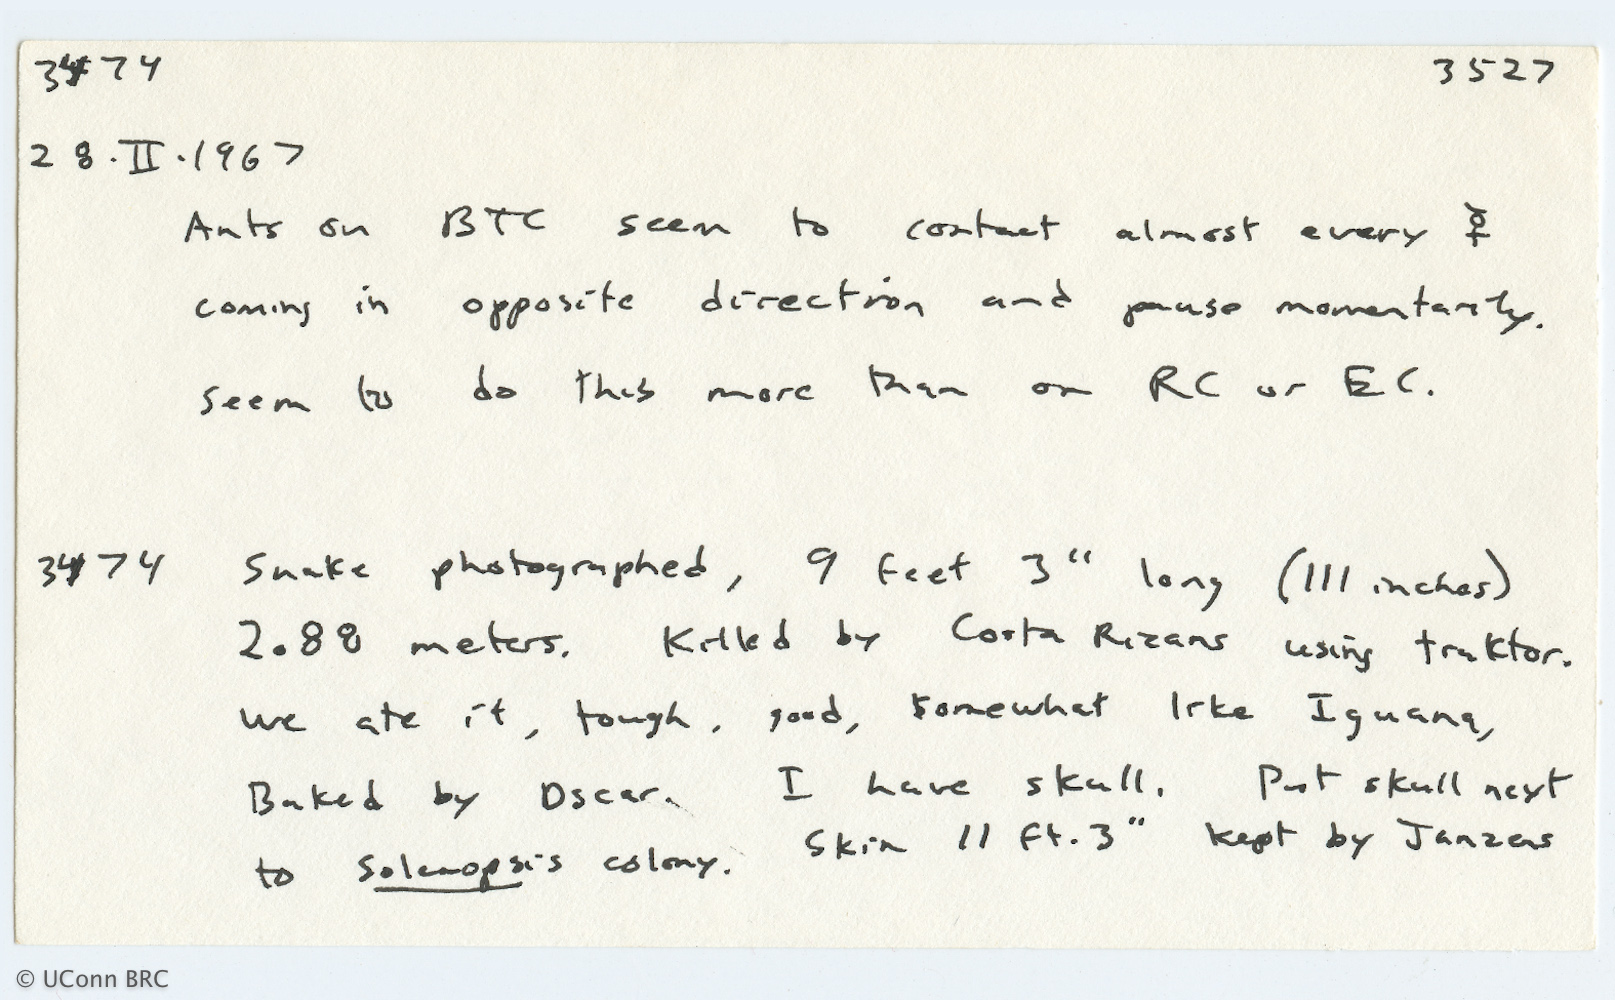 3474 3527
28.II.1967
Ants on BTC seem to contact almost every ☿
coming in opposite direction and pause momentarily.
Seem to do this more than on RC or EC.
3474 Snake photographed, 9 feet 3" long (111 inches)
2.88 meters. Killed by Costa Rizans using traktor.
We ate it, tough, good, somewhat like Iguana,
Baked by Oscar. I have skull. Put skull next
to Solenopsis colony. Skin 11 ft. 3" kept by Janzens
© UConn BRC